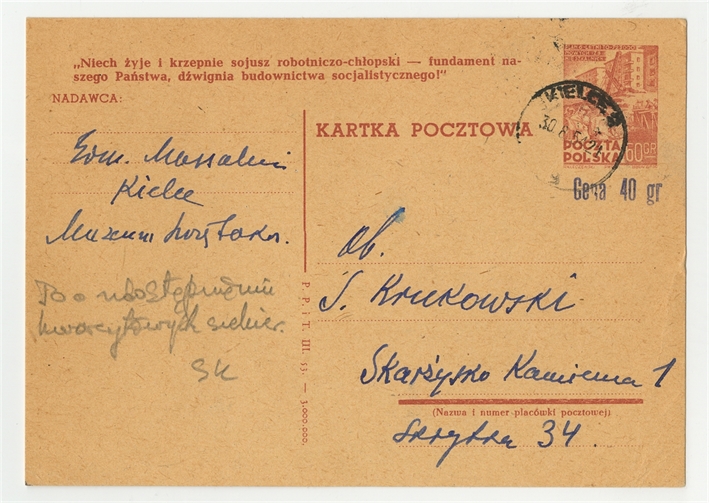 „Niech żyje i krzepnie sojusz robotniczo-chłopski — fundament na-
szego Państwa, dźwignia budownictwa socjalistycznego!"
NADAWCA:
Edm. Massalski
Kielce
Muzeum Świętokrz.
o udostępnieniu
kwarcytowych siekier.
SK
KARTKA POCZTOWA
KIELCE
POCZTA
POLSKA
60 GR
Cena 40 gr
Ob.
J. Krukowski
Skarżysko Kamienna 1
(Nazwa i numer placówki pocztowej)
Skrytka 34.
P. P. i T. III. 53. — 3.000.000.